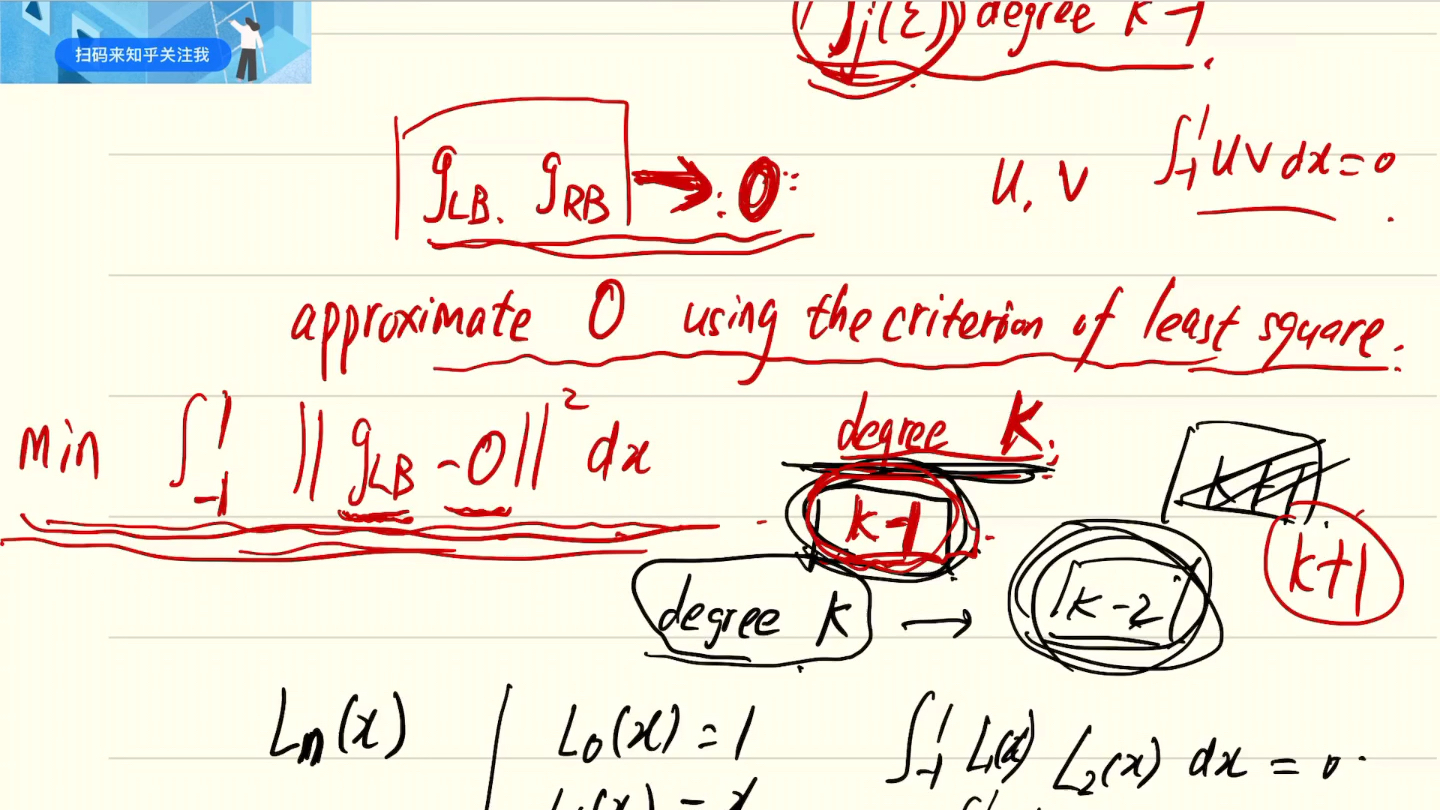 扫码来知乎关注我
degree k-1
g_LB. g_RB → 0
U, V ∫_{-1}^{1} U V dx = 0
approximate 0 using the criterion of least square.
min ∫_{-1}^{1} || g_LB - 0 ||² dx
degree K.
k+1
k-1
k+1
degree k → k-2
L_n(x) L_0(x) = 1 ∫_{-1}^{1} L_1(x) L_2(x) dx = 0.